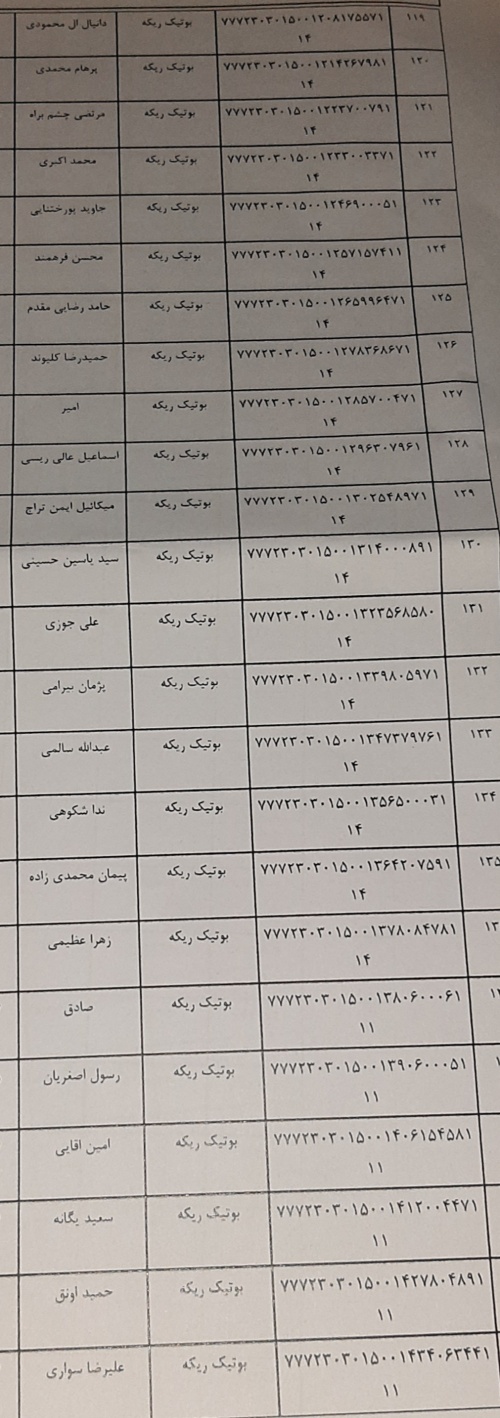 ۱۱۹ ۷۷۷۲۳۰۳۰۱۵۰۰۱۲۰۸۱۷۵۵۷۱ بوتیک ریکه دانیال ال محمودی
۱۴
۱۲۰ ۷۷۷۲۳۰۳۰۱۵۰۰۱۲۱۴۲۶۷۹۸۱ بوتیک ریکه پرهام محمدی
۱۴
۱۲۱ ۷۷۷۲۳۰۳۰۱۵۰۰۱۲۲۳۷۰۰۷۹۱ بوتیک ریکه مرتضی چشم براه
۱۴
۱۲۲ ۷۷۷۲۳۰۳۰۱۵۰۰۱۲۳۳۰۰۳۳۷۱ بوتیک ریکه محمد اکبری
۱۴
۱۲۳ ۷۷۷۲۳۰۳۰۱۵۰۰۱۲۴۶۹۰۰۰۵۱ بوتیک ریکه جاوید پورختنایی
۱۴
۱۲۴ ۷۷۷۲۳۰۳۰۱۵۰۰۱۲۵۷۱۵۷۴۱۱ بوتیک ریکه محسن فرهمند
۱۴
۱۲۵ ۷۷۷۲۳۰۳۰۱۵۰۰۱۲۶۵۹۹۶۴۷۱ بوتیک ریکه حامد رضایی مقدم
۱۴
۱۲۶ ۷۷۷۲۳۰۳۰۱۵۰۰۱۲۷۸۳۶۸۶۷۱ بوتیک ریکه حمیدرضا کلیوند
۱۴
۱۲۷ ۷۷۷۲۳۰۳۰۱۵۰۰۱۲۸۵۷۰۰۴۷۱ بوتیک ریکه امیر
۱۴
۱۲۸ ۷۷۷۲۳۰۳۰۱۵۰۰۱۲۹۶۳۰۷۹۶۱ بوتیک ریکه اسماعیل عالی ریسی
۱۴
۱۲۹ ۷۷۷۲۳۰۳۰۱۵۰۰۱۳۰۲۵۴۸۹۷۱ بوتیک ریکه میکائیل ایمن تراج
۱۴
۱۳۰ ۷۷۷۲۳۰۳۰۱۵۰۰۱۳۱۴۰۰۰۸۹۱ بوتیک ریکه سید یاسین حسینی
۱۴
۱۳۱ ۷۷۷۲۳۰۳۰۱۵۰۰۱۳۲۳۵۶۸۵۸۰ بوتیک ریکه علی جوزی
۱۴
۱۳۲ ۷۷۷۲۳۰۳۰۱۵۰۰۱۳۳۹۸۰۵۹۷۱ بوتیک ریکه پژمان بیرامی
۱۴
۱۳۳ ۷۷۷۲۳۰۳۰۱۵۰۰۱۳۴۷۳۷۹۷۶۱ بوتیک ریکه عبدالله سالمی
۱۴
۱۳۴ ۷۷۷۲۳۰۳۰۱۵۰۰۱۳۵۶۵۰۰۰۳۱ بوتیک ریکه ندا شکوهی
۱۴
۱۳۵ ۷۷۷۲۳۰۳۰۱۵۰۰۱۳۶۴۲۰۷۵۹۱ بوتیک ریکه پیمان محمدی زاده
۱۴
۷۷۷۲۳۰۳۰۱۵۰۰۱۳۷۸۰۸۴۷۸۱ بوتیک ریکه زهرا عظیمی
۱۴
۷۷۷۲۳۰۳۰۱۵۰۰۱۳۸۰۶۰۰۰۶۱ بوتیک ریکه صادق
۱۱
۷۷۷۲۳۰۳۰۱۵۰۰۱۳۹۰۶۰۰۰۵۱ بوتیک ریکه رسول اصغریان
۱۱
۷۷۷۲۳۰۳۰۱۵۰۰۱۴۰۶۱۵۴۵۸۱ بوتیک ریکه امین اقایی
۱۱
۷۷۷۲۳۰۳۰۱۵۰۰۱۴۱۲۰۰۴۴۷۱ بوتیک ریکه سعید یگانه
۱۱
۷۷۷۲۳۰۳۰۱۵۰۰۱۴۲۷۸۰۴۸۹۱ بوتیک ریکه حمید اونق
۱۱
۷۷۷۲۳۰۳۰۱۵۰۰۱۴۳۴۰۶۳۴۴۱ بوتیک ریکه علیرضا سواری
۱۱